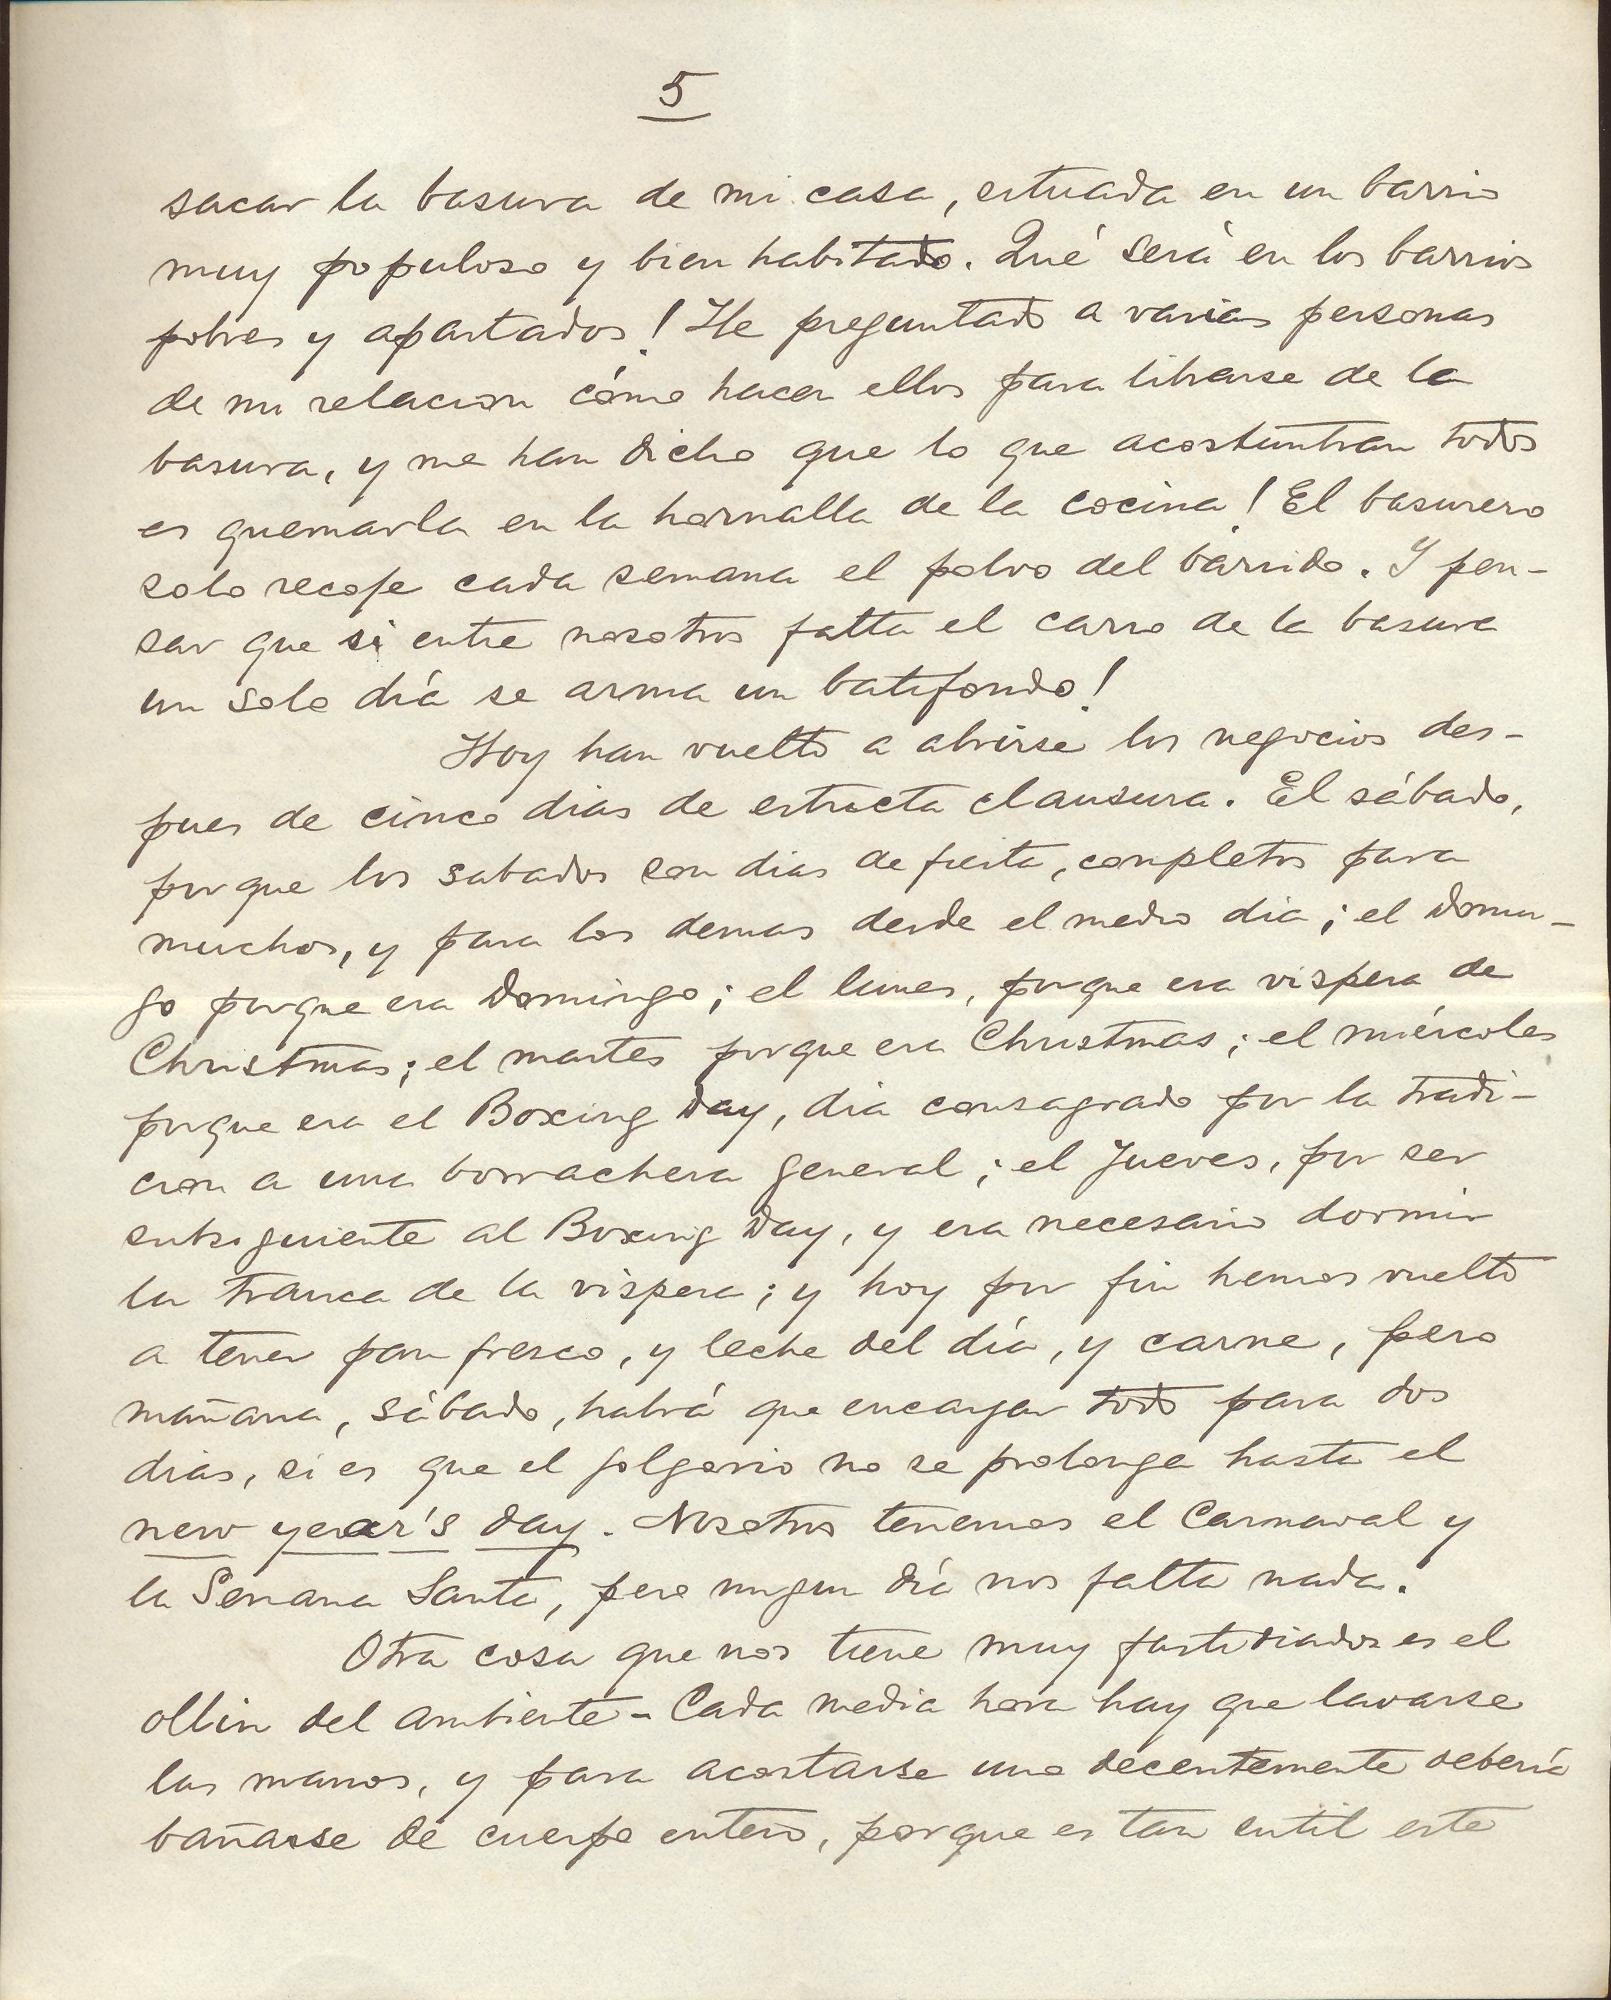 5
sacar la basura de mi casa, situada en un barrio
muy populoso y bien habitado. Qué será en los barrios
pobres y apartados! He preguntado a varias personas
de mi relacion cómo hacen ellos para librarse de la
basura, y me han dicho que lo que acostumbran todos
es quemarla en la hornalla de la cocina! El basurero
solo recoje cada semana el polvo del barrido. Y pen-
sar que si entre nosotros falta el carro de la basura
un solo día se arma un batifondo!
Hoy han vuelto a abrirse los negocios des-
pues de cinco dias de estricta clausura. El sábado,
porque los sabados son dias de fiesta, completos para
muchos, y para los demas desde el medio dia; el Domin-
go porque era Domingo; el lunes, porque era vispera de
Christmas; el martes porque era Christmas; el miércoles
porque era el Boxing Day, dia consagrado por la tradi-
cion a una borrachera general; el Jueves, por ser
subsiguiente al Boxing Day, y era necesario dormir
la tranca de la vispera; y hoy por fin hemos vuelto
a tener pan fresco, y leche del día, y carne, pero
mañana, sábado, habrá que encargar todo para dos
dias, si es que el jolgorio no se prolonga hasta el
new year's day. Nosotros tenemos el Carnaval y
la Semana Santa, pero ningun día nos falta nada.
Otra cosa que nos tiene muy fastidiados es el
ollin del ambiente - Cada media hora hay que lavarse
las manos, y para acostarse uno decentemente debería
bañarse de cuerpo entero, porque es tan sutil este